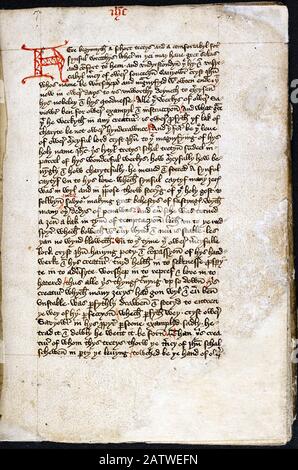 Ihc
Here begynnyth a schort tretys and a comfortabyl for
synful wrecchys wher in þei may haue gret solas
and comfort to hem and vndyrstondyn þe hy & vnspe
cabyl mercy of ower souereyn Sauyowr cryst Ihesu
whos name be worschepd and magnyfyed wythowten ende þat
now in ower days to vs vnworthy deyneth to exercysen
hys nobeley & hys goodnesse Alle þe werkys of ower Sa
uiowr ben for ower exampyl & instruccyon and what grace
þat he werkyth in any creatur is ower profyth yf lak of
charyte be not ower hynderawnce And þerfor be þe leue
of ower mercyful lord cryst Ihesu to þe magnyfying of hys
holy name Ihesu þis lytyl tretys schal tretyn sumdeel in
parcel of hys wonderful werkys how mercyfully how be
nyngly & how charytefully he meued & stered a synful
caytyf vn to hys loue whech synful caytyf many ȝerys
was in wyl and in purpose thorw steryng of þe holy gost to
folwyn oure Sauyowr makyng gret behestys of fastyngys wyth
many oþer dedys of penawns And euyr sche was turned
a ȝen a bak in tyme of temptacyon lech vn to þe reed
spyr whech boweth wyth euery wynd & neuyr is stable les
þan no wynd bloweth vn to þe tyme þat ower mercyfulle
lord cryst Ihesu hauyng pety & compassyon of hys hand
werke & hys creatur turnyd helth in to sekenesse prospery
te in to aduersyte worshep in to repref & loue in to
hatered Thus alle þis thyngys turnyng vp so down þis
creatur whych many ȝerys had gon wyl & euyr ben
vnstable was parfythly drawen & steryd to entren
þe wey of hy perfeccyon whech parfyth wey cryst ower
Sauyowr in hys propyr persoone examplyd Sadly he
trad it & dewly he went it beforn Than þis crea
tur of whom thys tretys thorw þe mercy of Ihesu schal
schewen in party þe leuyng towched be þe hand of owyr